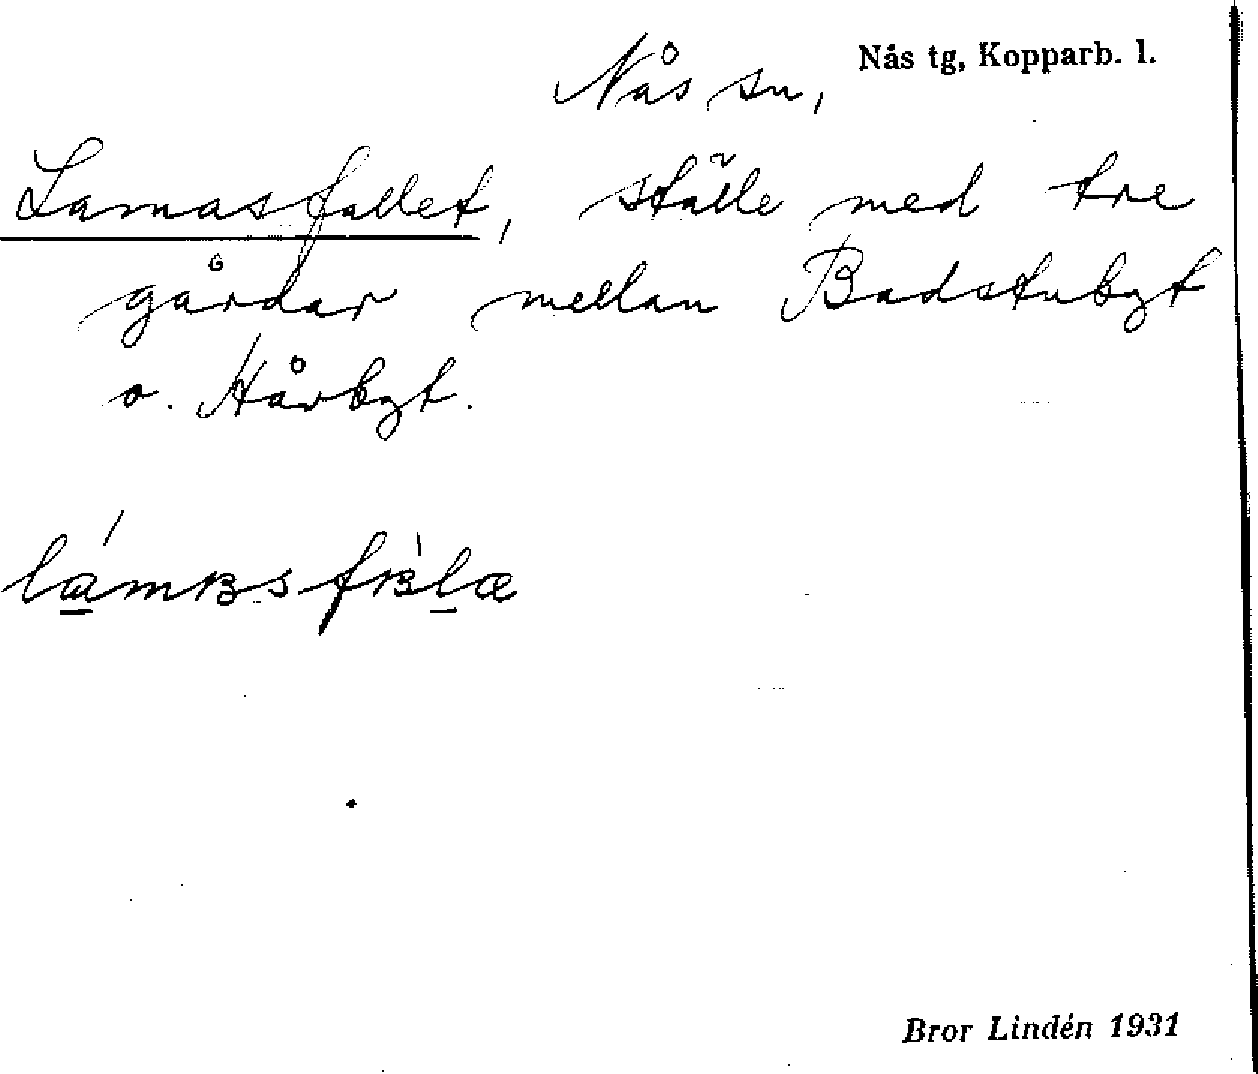 Nås tg, Kopparb. l.
Nås sn,
Lamasfallet, ställe med tre
gårdar mellan Badstubgt
o. Hårbgt.
Bror Lindén 1931